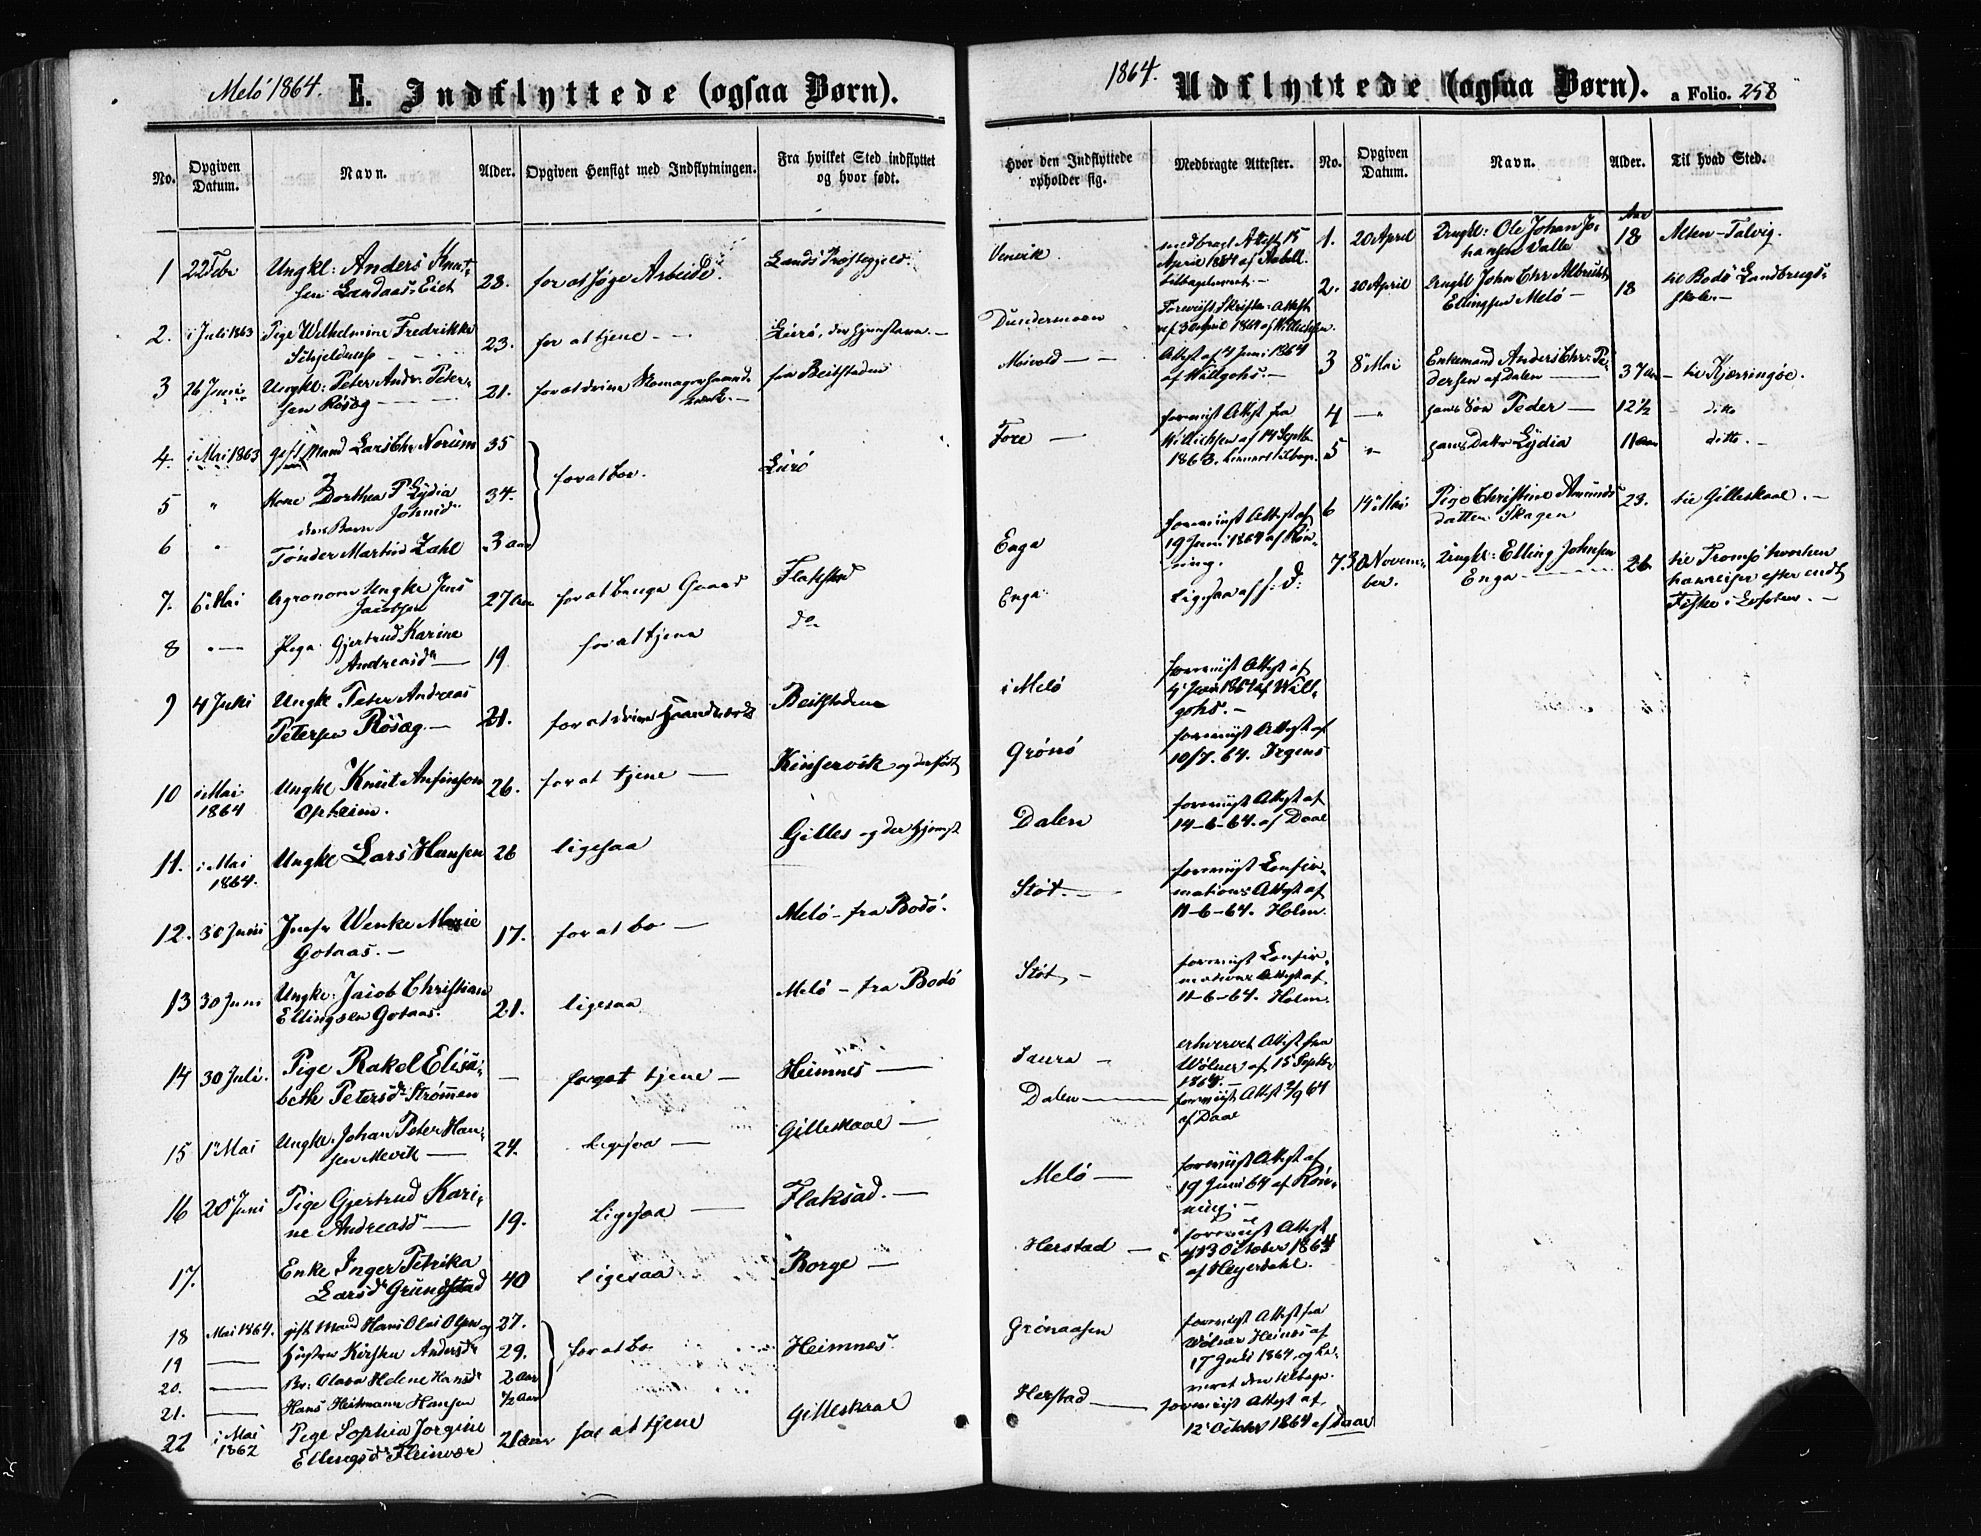 Melö 1864.
E. Indflyttede (ogsaa Børn).
No.
Opgiven Datum.
Navn.
Alder.
Opgiven Hensigt med Indflytningen.
Fra hvilket Sted indflyttet og hvor født.
1 22 Febr Ungkl: Anders Knut- 28. for at söge Arbeide. Lands Præstegjeld
sen Landaas-Eiet
2. i Juli 1863 Pige Wilhelmine Fredrikke 23. for at tjene - Lurö,
Schjelderup
3 26 Juni Ungkl: Peter Andr: Peter- 21. for at drive fra Beitstaden
sen Rösag
4. i Mai 1863 gift Mand Lars Chr Norum 35 for at boe. Lurö
5 " Kone Dorthea P Lydia 34.
deres Barn
6 " Tönder Martin Zahl 3 aar
7. 6 Mai Agronom Ungkl Jens 27 aar for at bruge Gaard Flakstad
Jacobsen
8 " Pige Gjertrud Karine 19 for at tjene do
Andreasdr
9 4 Juli Ungkl Peter Andreas 21. for at drive Haandværk Beitstaden
Petersen Rösag
10 i Mai 1864 Ungkl Knut Anfinsen 26. for at tjene Kinservik og der født
Opheim.
11. i Mai 1864. Ungkl Lars Hansen 26 ligesaa Gilles og der
12. 30 Juni Jmfr Wenke Marie 17. for at bo Melö - fra Bodö.
Gotaas.
13 30 Juni Ungkl: Jacob Christian 21. ligesaa Melö - fra Bodö
Ellingsen Gotaas.
14 30 Juli. Pige Rakel Elisa- — for at tjene Heimnes
beth Petersdr Strömmen
15 1 Mai Ungkl. Johan Peter Han- 24. Ligesaa Gilleskaal
sen Mevik
16 20 Juni Pige Gjertrud Kari- 19. Ligesaa Flaksad.
ne Andreasd
17. Enke Inger Petrika 40 Ligesaa Borge
Larsdr Grundstad
18 Mai 1864. gift Mand Hans Olai Olsen og 27. for at bo Heimnes
19 — Hustru Kirsten Andersdr 29.
20. — Br: Olava Helene Hansdr 2 aar
21. — Hans Heitmann Hansen ½ aar
22 i Mai 1862 Pige Sophia Jorgine 21 aar for at tjene Gilleskaal
Ellingsdr Fleinvær
1864.
Udflyttede (ogsaa Børn).
a Folio. 258
Hvor den Indflyttede opholder sig.
Medbragte Attester.
No.
Opgiven Datum.
Navn.
Alder.
Til hvad Sted.
Venvik
medbragt Attest 15
April 1864 af
Dundermoen
Forevist Attest
af 30 April 1864 af Willichsen.
Meivold
Attest af 4 Juni 1864
af Wallgohs.
Fore
forevist Attest fra
Willichsen af 14 Septb
1863.
Enga
forevist Attest af
19 Juni 1864 af Rön-
ning.
Enga
Ligesaa af s: d:
i Melö
forevist Attest af
4 Juni 1864 af Will-
gohs.
Grönö
forevist Attest af
10/7. 64. Irgens
Dalen
forevist Attest af
14-6-64. af Daae
Stöt.
forevist Confir-
mations Attest af
11-6-64. Holm.
Stöt
forevist Confir-
mations Attest af
11-6-64. Holm.
Saura
erhvervet Attest fra
Wölner af 15 Septbr
1864.
Dalen
forevist Attest 2/9 64
af Daae
Melö
forevist Attest af
19 Juni 64 af Rön-
ning.
Herstad
forevist Attest
af 13 October 1864
af Heyerdahl.
Grönaasen
forevist Attest fra
Wölner Heimnes af
17 Juli 1864, og le-
veret den tilbage.
Herstad
forevist Attest af
12 October 1864 af Daae
1. 20 April Ungkl: Ole Johan Jo- Aar 18 Alten-Talvig.
hansen Valla
2. 20 April Ungkl John Chr Albrigt 18 til Bodö Landbrugs-
Ellingsen Melö skole.
3 8 Mai Enkemand Anders Chr: Pe- 37 Aar til Kjerringöe.
dersen af Dalen
4 " hans Sön Peder 12½ dito
5 " hans Datter Lydia 11 Aar ditto.
6 14 Mai Pige Christine Amunds 23. til Gilleskaal.
datter Skagen
7. 30 Novem- Ungkl: Elling Johnsen 26 til Tromsö hvorhen
ber. Enga han reiser efter endt
Fiske i Lofoten.